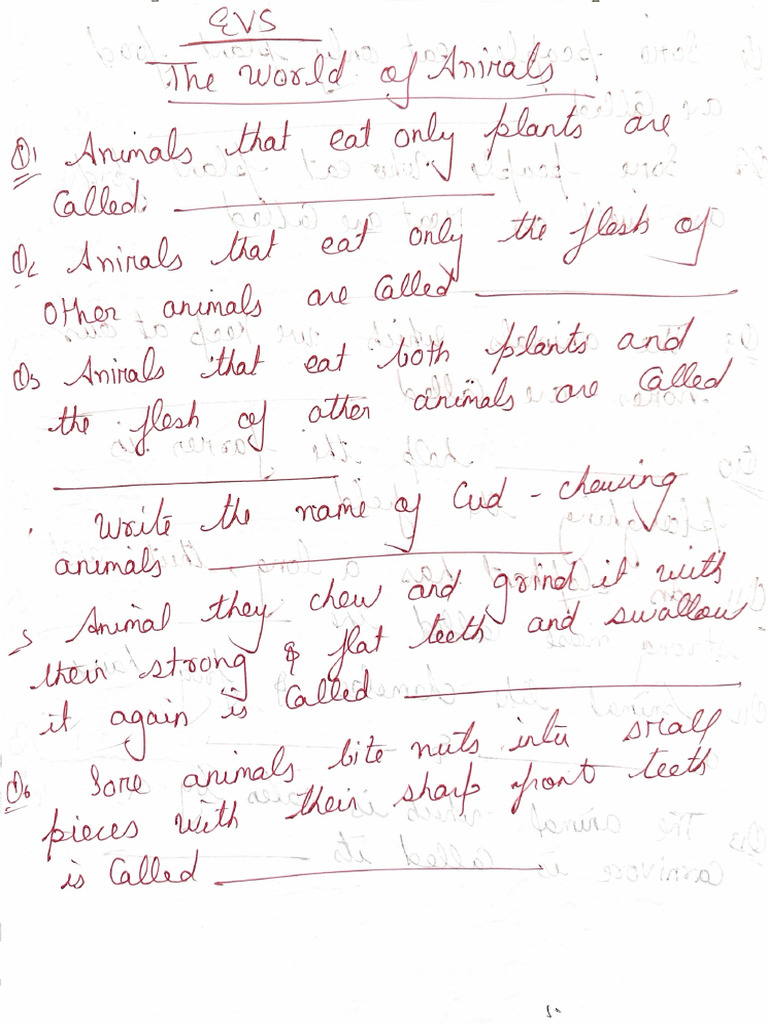 EVS
The World of Animals
Q1 Animals that eat only plants are
Called:
Q2 Animals that eat only the flesh of
other animals are Called
Q3 Animals that eat both plants and
the flesh of other animals are Called
Write the name of Cud - chewing
animals
5 Animal they chew and grind it with
their strong & flat teeth and swallow
it again is Called
Q6 Some animals bite nuts into small
pieces with their sharp front teeth
is Called